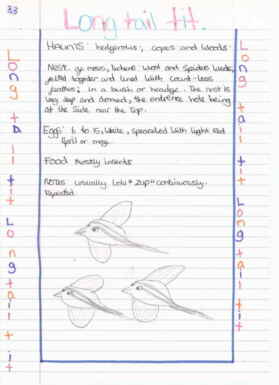 33
Long tail tit.
HAUNTS: hedgerows, copes and woods.
Nest: go moss, lichens wool and spiders webs,
felted together and lined with count-less
feathers; in a bush or headge. The nest is
very deep and domed, the entrence hole being
at the side near the top.
Eggs: to 15, white, speackled with light red
spots or
Food mostly insects
NOTES usually "zup" continuously.
Repeated.
Long tail tit Long tail tit
Long tail tit Long tail tit